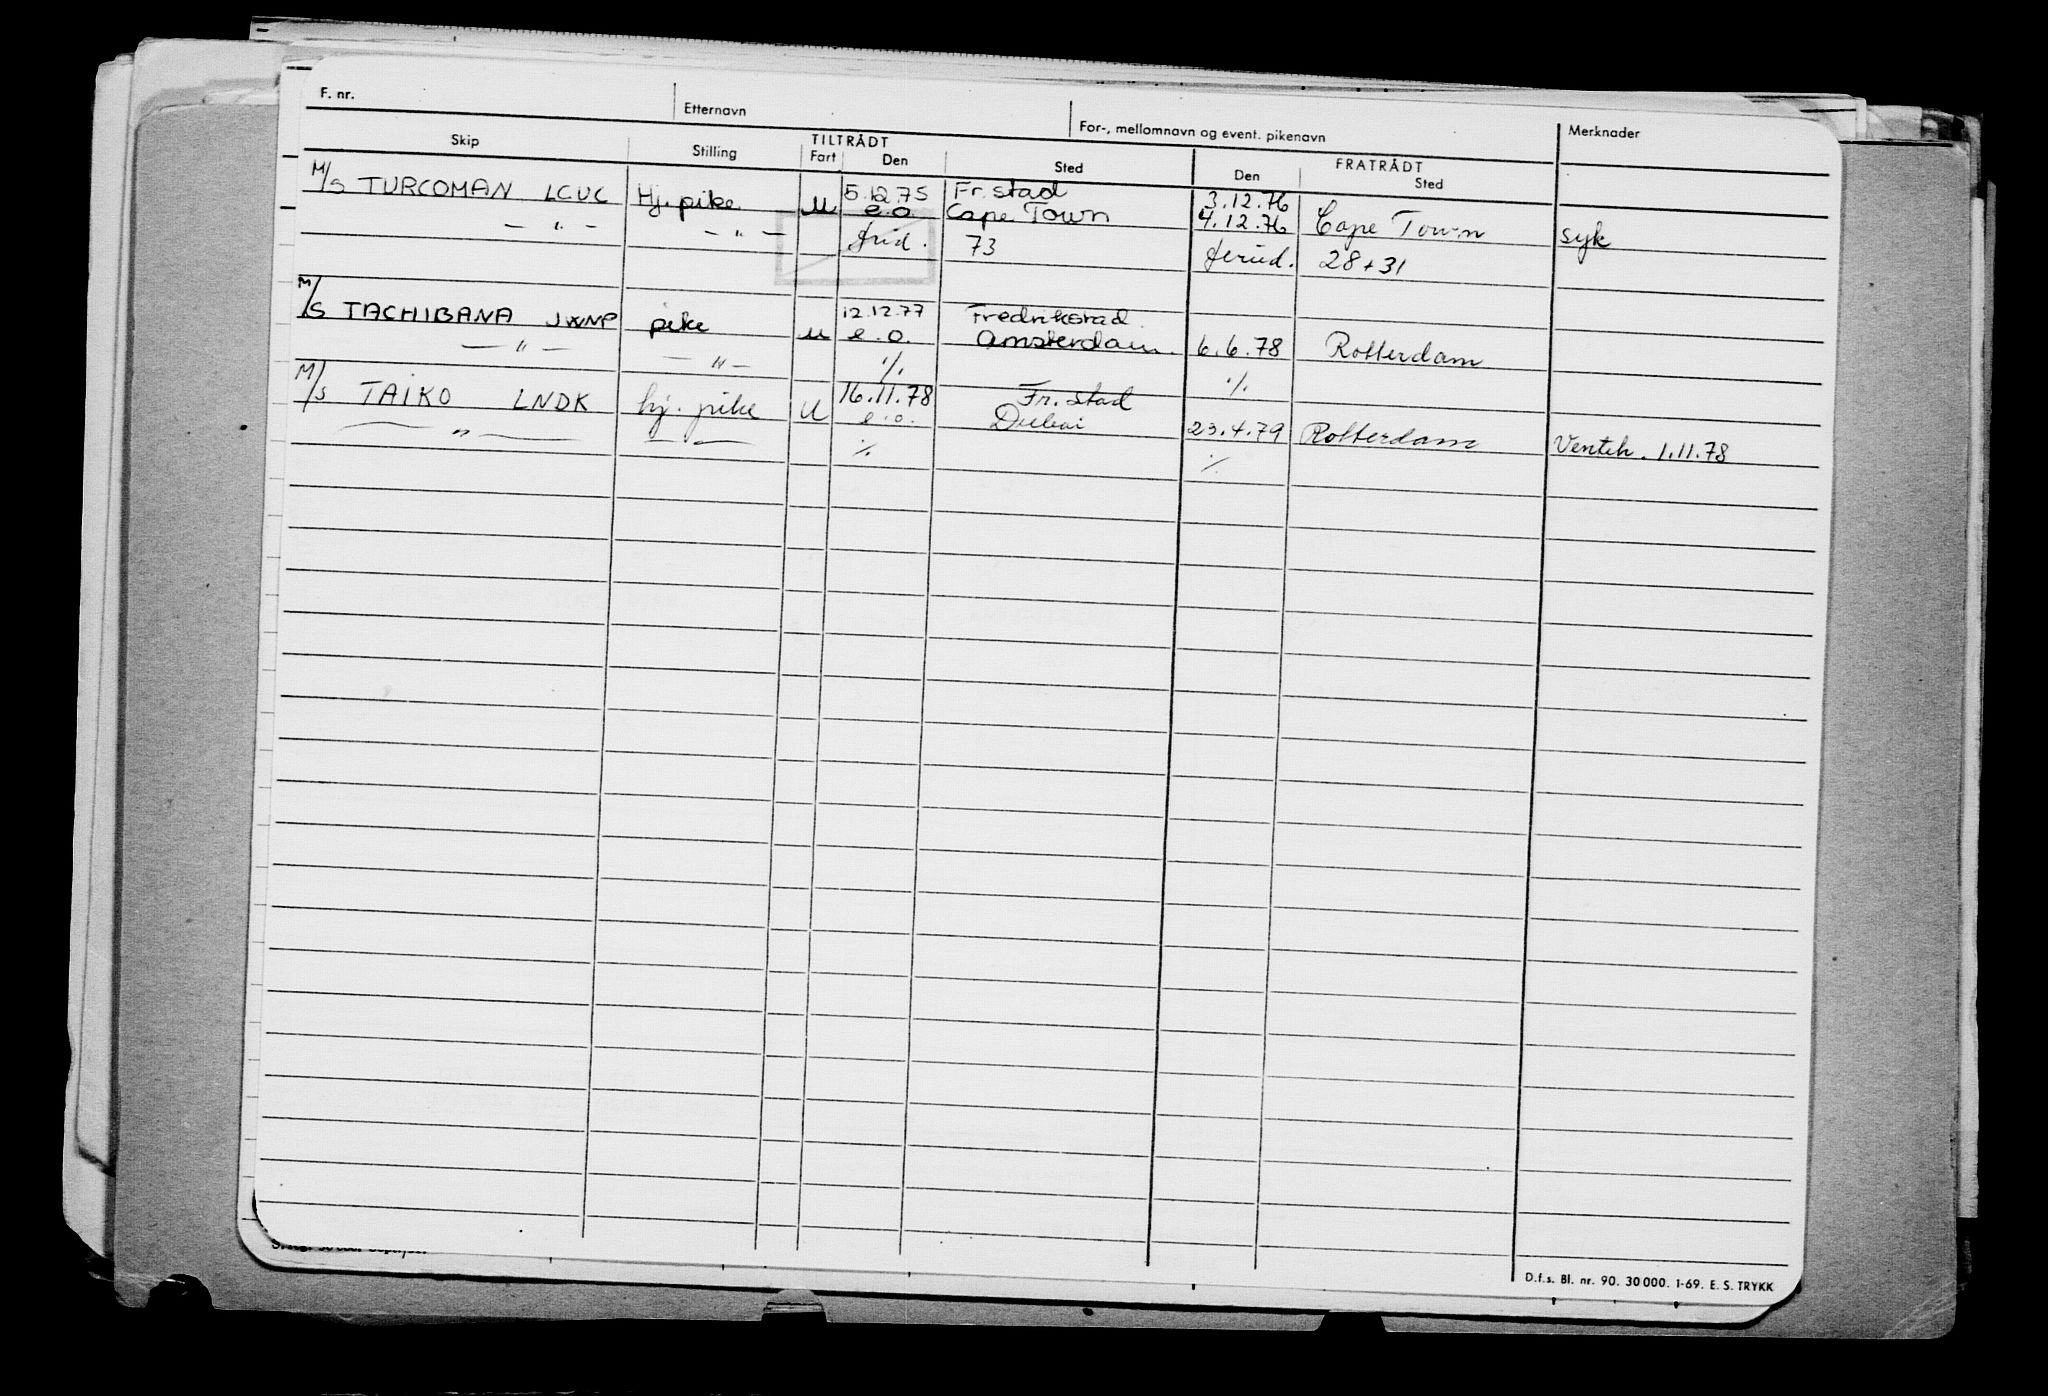 F. nr. Etternavn For-, mellomnavn og event. pikenavn Merknader
TILTRÅDT FRATRÅDT
Skip Stilling Fart Den Sted Den Sted
M/S TURCOMAN LCUC Hj. pike U 5.12.75 Fr.stad 3.12.76
e.o. Cape Town 4.12.76 Cape Town syk
— " — — " — 73 28 + 31
M/S TACHIBANA JWNP pike U 12.12.77 Fredrikstad
e.o. Amsterdam. 6.6.78 Rotterdam
— " — — " — ./. ./.
M/S TAIKO LNDK hj. pike U 16.11.78 Fr.stad
e.o. Dubai 23.4.79 Rotterdam Venteh. 1.11.78
— " — — — ./. ./.
D.f.s. Bl. nr. 90. 30 000. 1-69. E. S. TRYKK